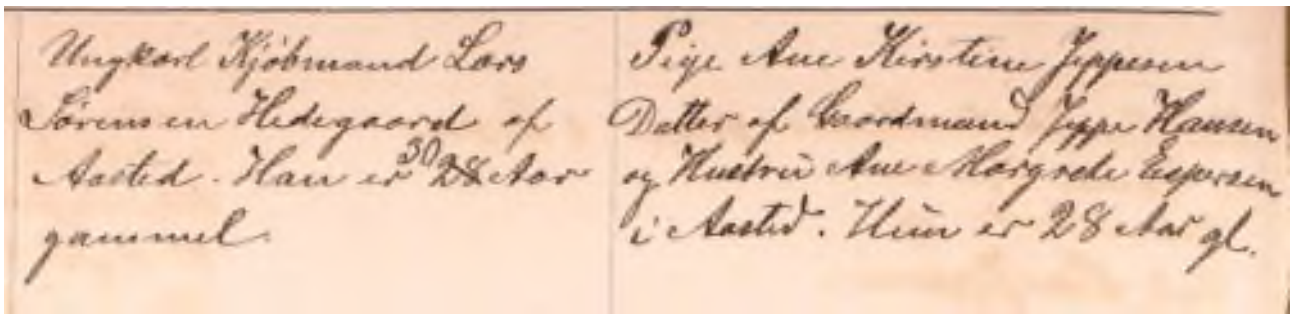 Ungkarl Kjöbmand Lars
Sörensen Hedegaard af
Aasted. Han er 30 28 Aar
gammel.
Pige Ane Kirstine Jeppesen
Datter af Gaardmand Jeppe Hansen
og Hustru Ane Margrete Espersen
i Aasted. Hun er 28 Aar gl.